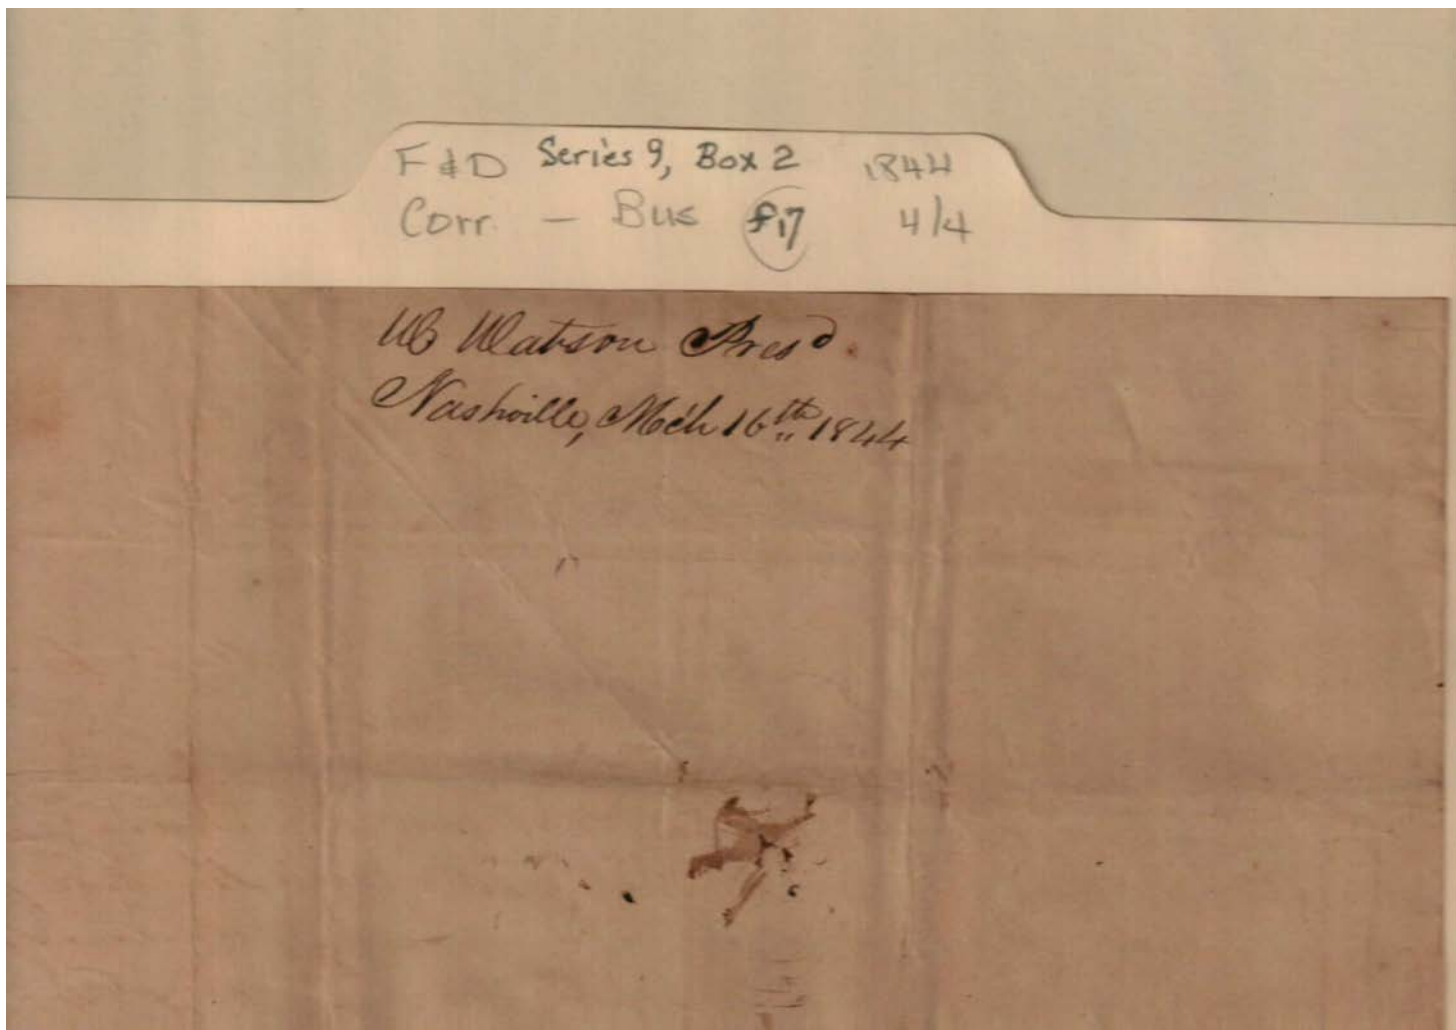 F & D Series 9, Box 2 1844
Corr. — Bus f17 4/4
Watson Presd.
Nashville, Mch 16th 1844